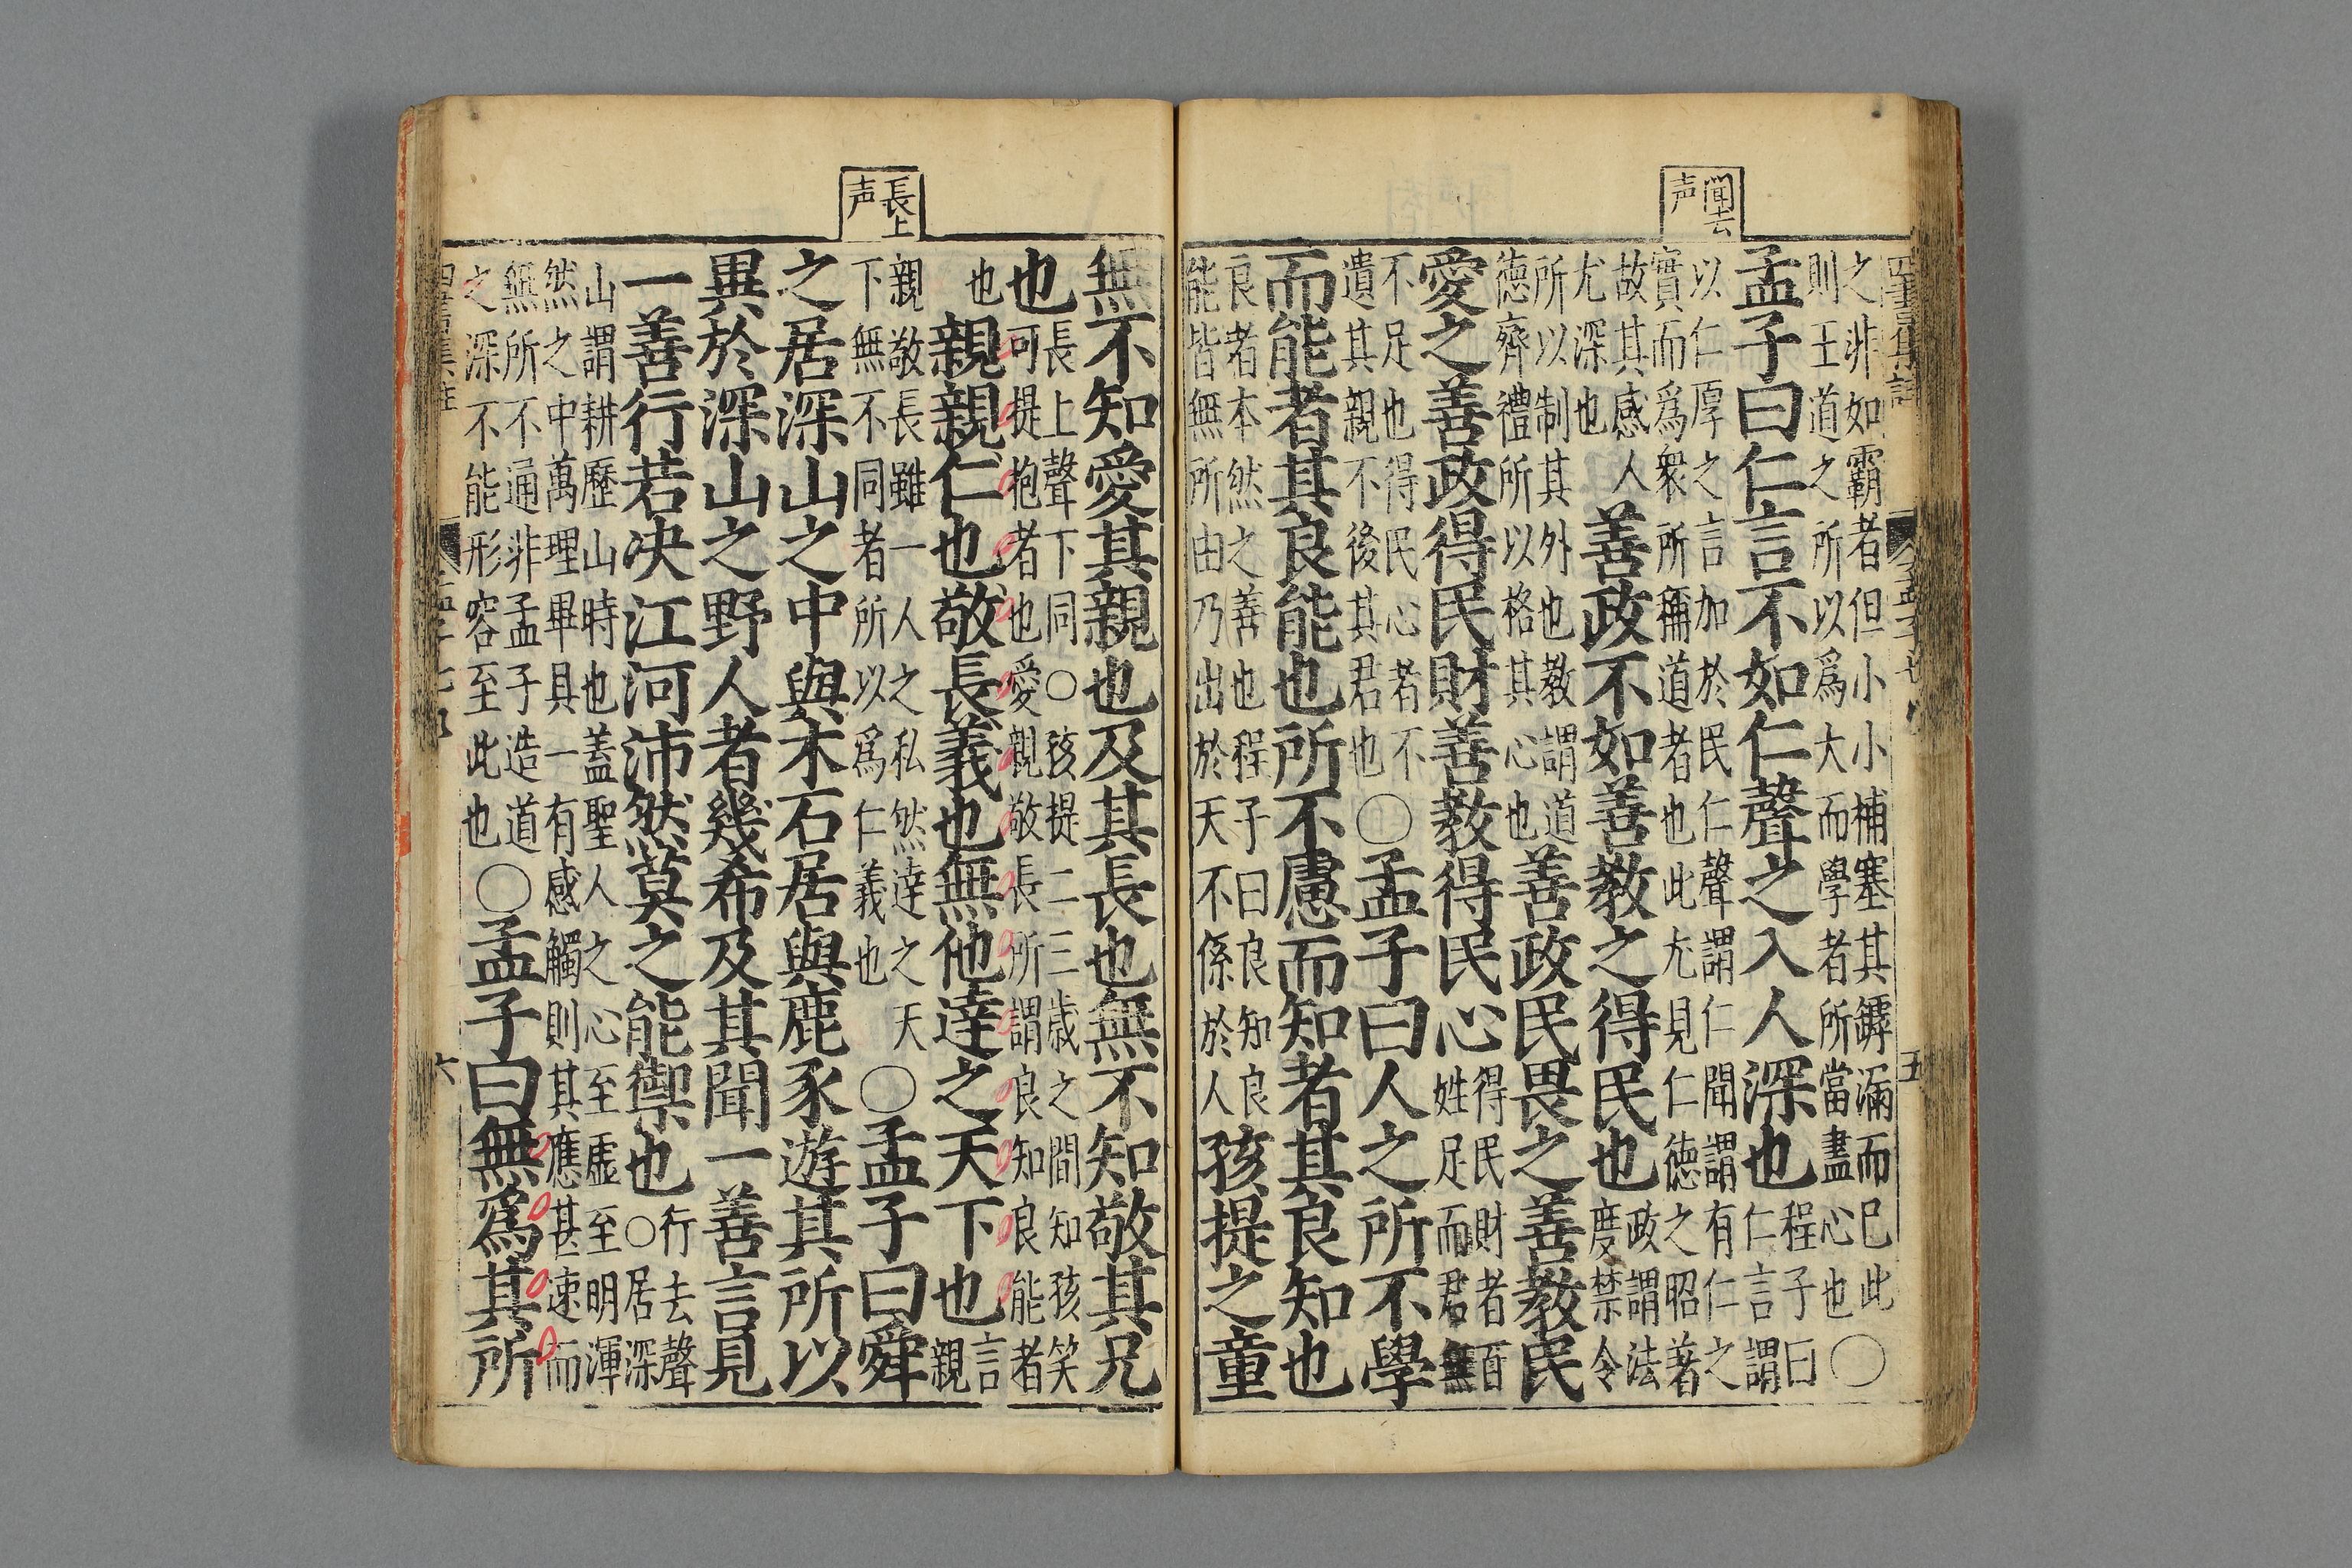 聞去
声
之非如霸者但小小補塞其罅漏而已此
則王道之所以爲大而學者所當盡心也〇
孟子曰仁言不如仁聲之入人深也程子曰仁言謂
以仁厚之言加於民仁聲謂仁聞謂有仁之
實而爲衆所稱道者也此尤見仁德之昭著
故其感人
尤深也
善政不如善教之得民也政謂法
度禁令
所以制其外也教謂道
德齊禮所以格其心也
善政民畏之善教民
愛之善政得民財善教得民心得民財者百
姓足而君無
不足也得民心者不
遺其親不後其君也
〇孟子曰人之所不學
而能者其良能也所不慮而知者其良知也
良者本然之善也程子曰良知良
能皆無所由乃出於天不係於人
孩提之童
長上
声
無不知愛其親也及其長也無不知敬其兄
也
長上聲下同〇孩提二三歲之間知孩笑
可提抱者也愛親敬長所謂良知良能者
也
親親仁也敬長義也無他達之天下也言
親
親敬長雖一人之私然達之天
下無不同者所以爲仁義也
〇孟子曰舜
之居深山之中與木石居與鹿豕遊其所以
異於深山之野人者幾希及其聞一善言見
一善行若决江河沛然莫之能禦也行去聲
〇居深
山謂耕歷山時也蓋聖人之心至虛至明渾
然之中萬理畢具一有感觸則其應甚速而
無所不通非孟子造道
之深不能形容至此也
〇孟子曰無爲其所
六